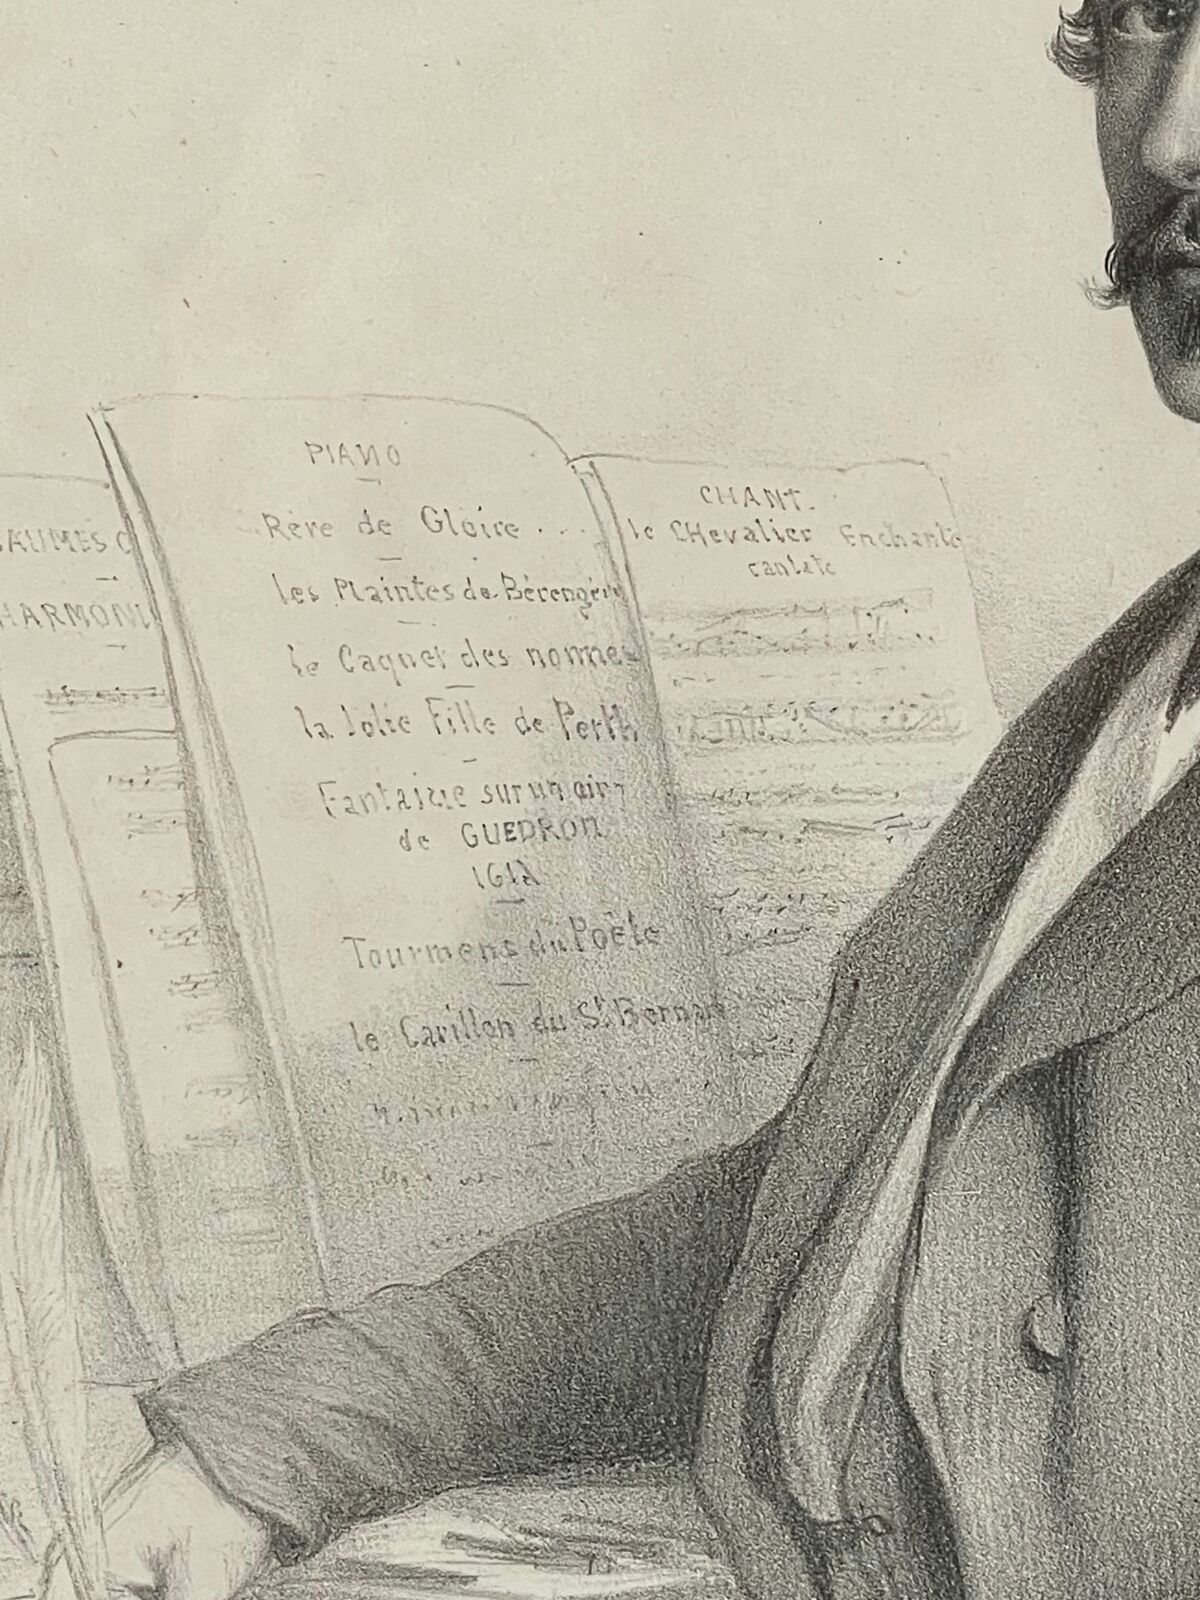 PIANO
Rêve de Gloire . . .
les Plaintes de Bérengère
le Caquet des nonnes
la Jolie Fille de Perth
Fantaisie sur un air
de GUEDRON
1612
Tourmens du Poête
le Carillon du St. Bernard
CHANT.
le CHevalier Enchanté
cantate
AUMES
HARMONI